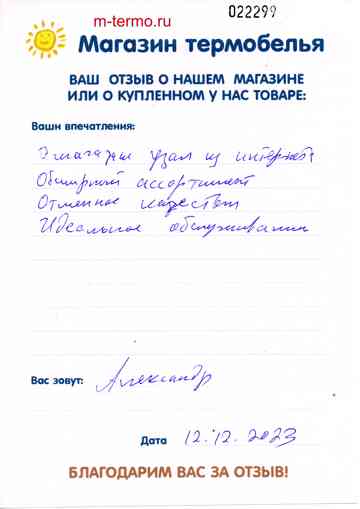 m-termo.ru
022299
Магазин термобелья
ВАШ ОТЗЫВ О НАШЕМ МАГАЗИНЕ
ИЛИ О КУПЛЕННОМ У НАС ТОВАРЕ:
Ваши впечатления:
О магазине узнал из интернета
Обширный ассортимент
Отменное качество
Идеальное обслуживание
Вас зовут: Александр
Дата 12.12.2023
БЛАГОДАРИМ ВАС ЗА ОТЗЫВ!